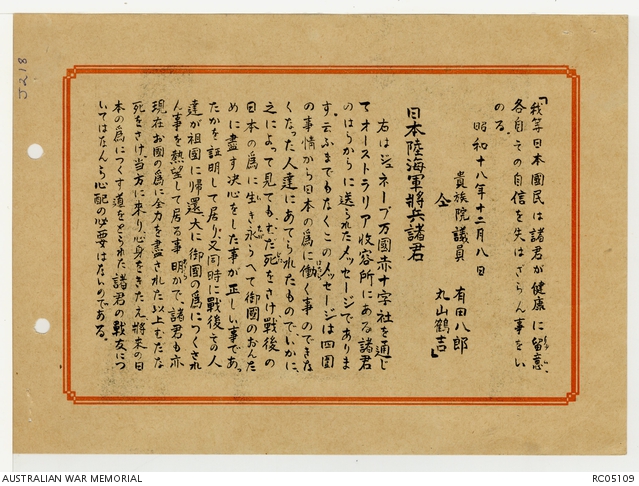 「我等日本國民は諸君が健康に留意
各自その自信を失はざらん事をい
のる。
昭和十八年十二月八日
貴族院議員 有田八郎
仝 丸山鶴吉」
日本陸海軍將兵諸君
右はジュネーブ万國赤十字社を通じ
てオーストラリア收容所にある諸君
のはらからに送られたメッセージでありま
す。云ふまでもなくこのメッセージは四圍
の事情から日本の為に働く事のできな
くなった人達にあてられたものでいかに、
之によって見てもむだ死をさけ戰後の
日本の為に生き永らへて御國のおんた
めに盡す決心をした事が正しい事であっ
たかを証明して居り、又同時に戰後その人
達が祖國に帰還大に御國の為につくされ
ん事を熱望して居る事明かで、諸君も亦
現在お國の為に全力を盡された以上むだな
死をさけ当方に来り、心身をきたえ將来の日
本の為につくす道をとられた諸君の戰友につ
いてはなんら心配の必要はないのである。
J218
AUSTRALIAN WAR MEMORIAL
RC05109